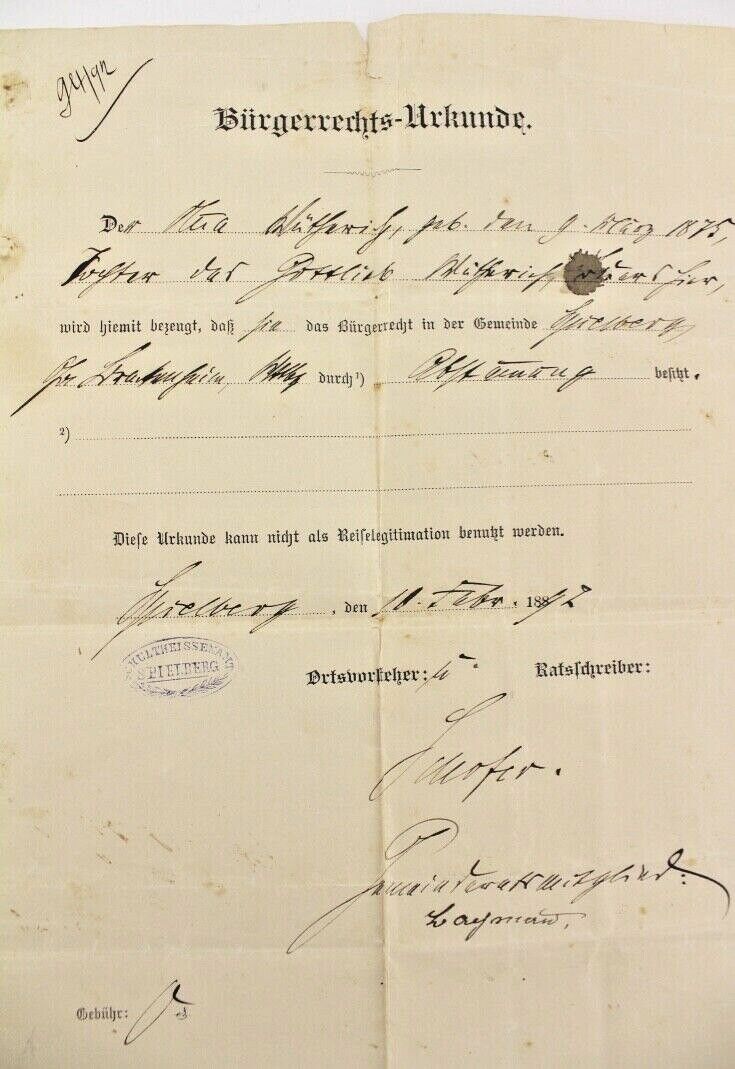 Bürgerrechts-Urkunde.
Der geb. den 9. März 1875,
Tochter des Gottlieb
wird hiemit bezeugt, daß sie das Bürgerrecht in der Gemeinde Spielberg,
Brackenheim, durch¹) Abstammung besitzt.
²)
Diese Urkunde kann nicht als Reiselegitimation benutzt werden.
Spielberg, den 10. Febr. 1892
SCHULTHEISSENAMT
SPIELBERG
Ortsvorsteher: Ratsschreiber:
Schofer.
Gemeinderatsmitglied:
Bachmann.
Gebühr: